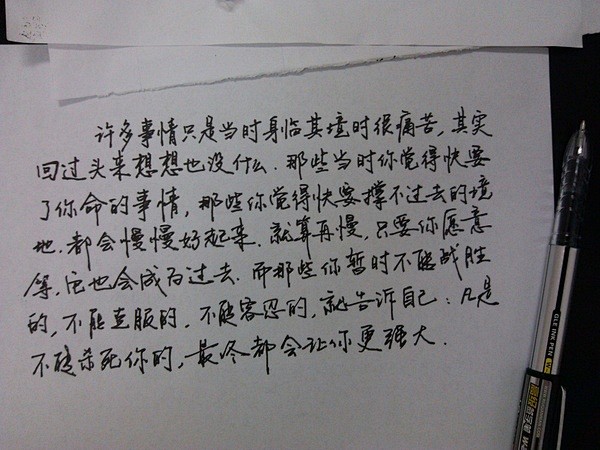 许多事情只是当时身临其境时很痛苦,其实
回过头来想想也没什么.那些当时你觉得快要
了你命的事情,那些你觉得快要撑不过去的境
地.都会慢慢好起来.就算再慢,只要你愿意
等,它也会成为过去.而那些你暂时不能战胜
的,不能克服的,不能容忍的,就告诉自己:凡是
不能杀死你的,最终都会让你更强大.
GLE INK PEN